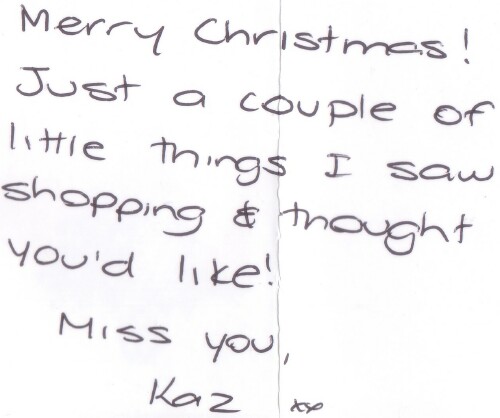 Merry Christmas!
Just a couple of
little things I saw
shopping & thought
you'd like!
Miss you,
Kaz xxo